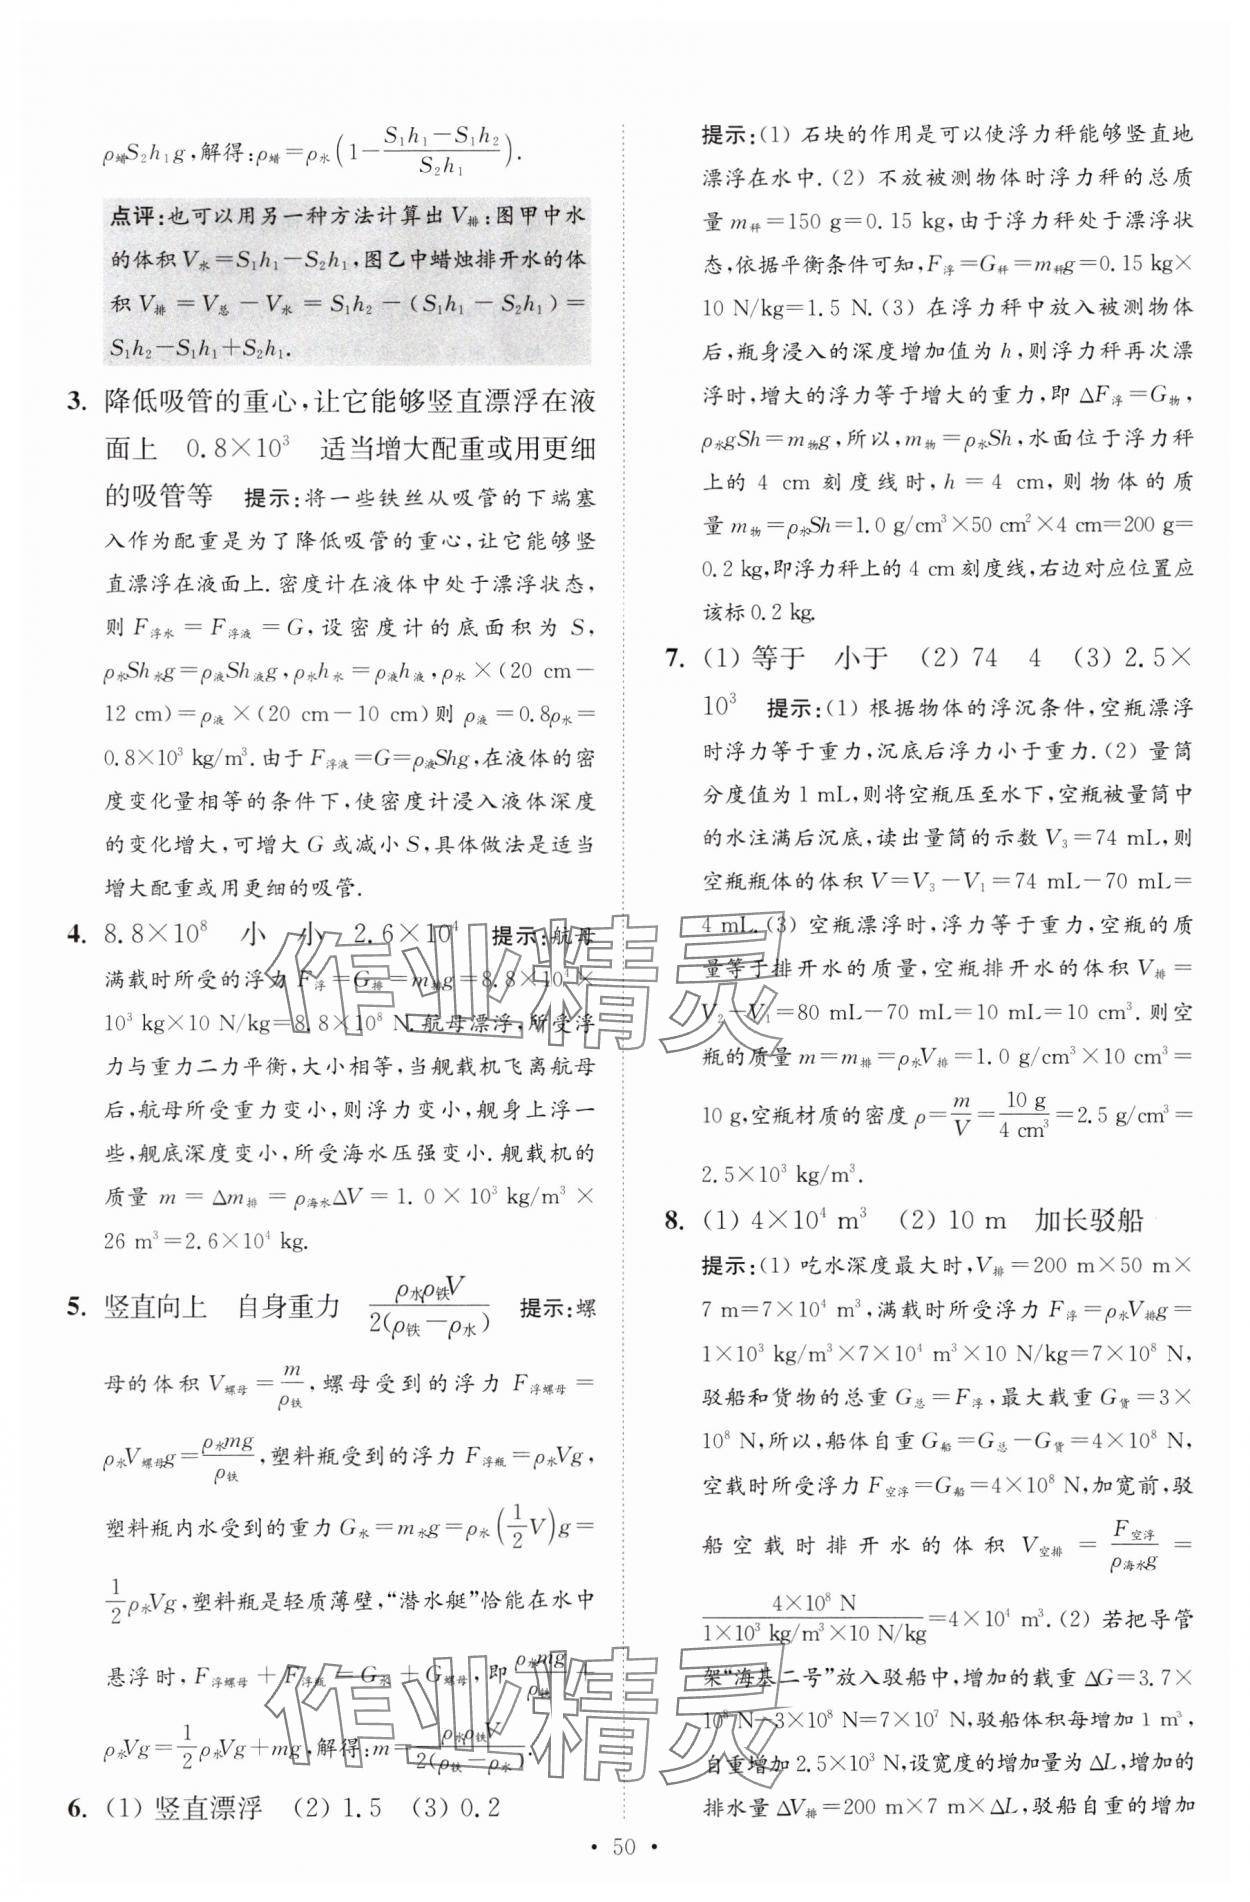 ρ蜡S₂h₁g,解得:ρ蜡=ρ水(1-(S₁h₁-S₁h₂)/(S₂h₁)).
点评:也可以用另一种方法计算出V排:图甲中水
的体积V水=S₁h₁-S₂h₁,图乙中蜡烛排开水的体
积V排=V总-V水=S₁h₂-(S₁h₁-S₂h₁)=
S₁h₂-S₁h₁+S₂h₁.
3. 降低吸管的重心,让它能够竖直漂浮在液
面上 0.8×10³ 适当增大配重或用更细
的吸管等 提示:将一些铁丝从吸管的下端塞
入作为配重是为了降低吸管的重心,让它能够竖
直漂浮在液面上.密度计在液体中处于漂浮状态,
则F浮水=F浮液=G,设密度计的底面积为S,
ρ水Sh水g=ρ液Sh液g,ρ水h水=ρ液h液,ρ水×(20 cm-
12 cm)=ρ液×(20 cm-10 cm)则ρ液=0.8ρ水=
0.8×10³ kg/m³.由于F浮液=G=ρ液Shg,在液体的密
度变化量相等的条件下,使密度计浸入液体深度
的变化增大,可增大G或减小S,具体做法是适当
增大配重或用更细的吸管.
4. 8.8×10⁸ 小 小 2.6×10⁴ 提示:航母
满载时所受的浮力F浮=G排=m排g=8.8×10⁴×
10³ kg×10 N/kg=8.8×10⁸ N.航母漂浮,所受浮
力与重力二力平衡,大小相等,当舰载机飞离航母
后,航母所受重力变小,则浮力变小,舰身上浮一
些,舰底深度变小,所受海水压强变小.舰载机的
质量m=Δm排=ρ海水ΔV=1.0×10³ kg/m³×
26 m³=2.6×10⁴ kg.
5. 竖直向上 自身重力 ρ水ρ铁V/2(ρ铁-ρ水) 提示:螺
母的体积V螺母=m/ρ铁,螺母受到的浮力F浮螺母=
ρ水V螺母g=ρ水mg/ρ铁,塑料瓶受到的浮力F浮瓶=ρ水Vg,
塑料瓶内水受到的重力G水=m水g=ρ水(1/2V)g=
1/2ρ水Vg,塑料瓶是轻质薄壁,“潜水艇”恰能在水中
悬浮时,F浮螺母+F浮瓶=G水+G螺母,即ρ水mg/ρ铁+
ρ水Vg=1/2ρ水Vg+mg,解得:m=ρ水ρ铁V/2(ρ铁-ρ水).
6. (1) 竖直漂浮 (2) 1.5 (3) 0.2
提示:(1) 石块的作用是可以使浮力秤能够竖直地
漂浮在水中.(2) 不放被测物体时浮力秤的总质
量m秤=150 g=0.15 kg,由于浮力秤处于漂浮状
态,依据平衡条件可知,F浮=G秤=m秤g=0.15 kg×
10 N/kg=1.5 N.(3) 在浮力秤中放入被测物体
后,瓶身浸入的深度增加值为h,则浮力秤再次漂
浮时,增大的浮力等于增大的重力,即ΔF浮=G物,
ρ水gSh=m物g,所以,m物=ρ水Sh,水面位于浮力秤
上的4 cm刻度线时,h=4 cm,则物体的质
量m物=ρ水Sh=1.0 g/cm³×50 cm²×4 cm=200 g=
0.2 kg,即浮力秤上的4 cm刻度线,右边对应位置应
该标0.2 kg.
7. (1) 等于 小于 (2) 74 4 (3) 2.5×
10³ 提示:(1) 根据物体的浮沉条件,空瓶漂浮
时浮力等于重力,沉底后浮力小于重力.(2) 量筒
分度值为1 mL,则将空瓶压至水下,空瓶被量筒中
的水注满后沉底,读出量筒的示数V₃=74 mL,则
空瓶瓶体的体积V=V₃-V₁=74 mL-70 mL=
4 mL.(3) 空瓶漂浮时,浮力等于重力,空瓶的质
量等于排开水的质量,空瓶排开水的体积V排=
V₂-V₁=80 mL-70 mL=10 mL=10 cm³.则空
瓶的质量m=m排=ρ水V排=1.0 g/cm³×10 cm³=
10 g,空瓶材质的密度ρ=m/V=10 g/4 cm³=2.5 g/cm³=
2.5×10³ kg/m³.
8. (1) 4×10⁴ m³ (2) 10 m 加长驳船
提示:(1) 吃水深度最大时,V排=200 m×50 m×
7 m=7×10⁴ m³,满载时所受浮力F浮=ρ水V排g=
1×10³ kg/m³×7×10⁴ m³×10 N/kg=7×10⁸ N,
驳船和货物的总重G总=F浮,最大载重G货=3×
10⁸ N,所以,船体自重G船=G总-G货=4×10⁸ N,
空载时所受浮力F空浮=G船=4×10⁸ N,加宽前,驳
船空载时排开水的体积V空排=F空浮/ρ海水g=
4×10⁸ N/1×10³ kg/m³×10 N/kg=4×10⁴ m³.(2) 若把导管
架“海基二号”放入驳船中,增加的载重ΔG=3.7×
10⁸ N-3×10⁸ N=7×10⁷ N,驳船体积每增加1 m³,
自重增加2.5×10³ N,设宽度的增加量为ΔL,增加的
排水量ΔV排=200 m×7 m×ΔL,驳船自重的增加
• 50 •
作业精灵
作业精灵